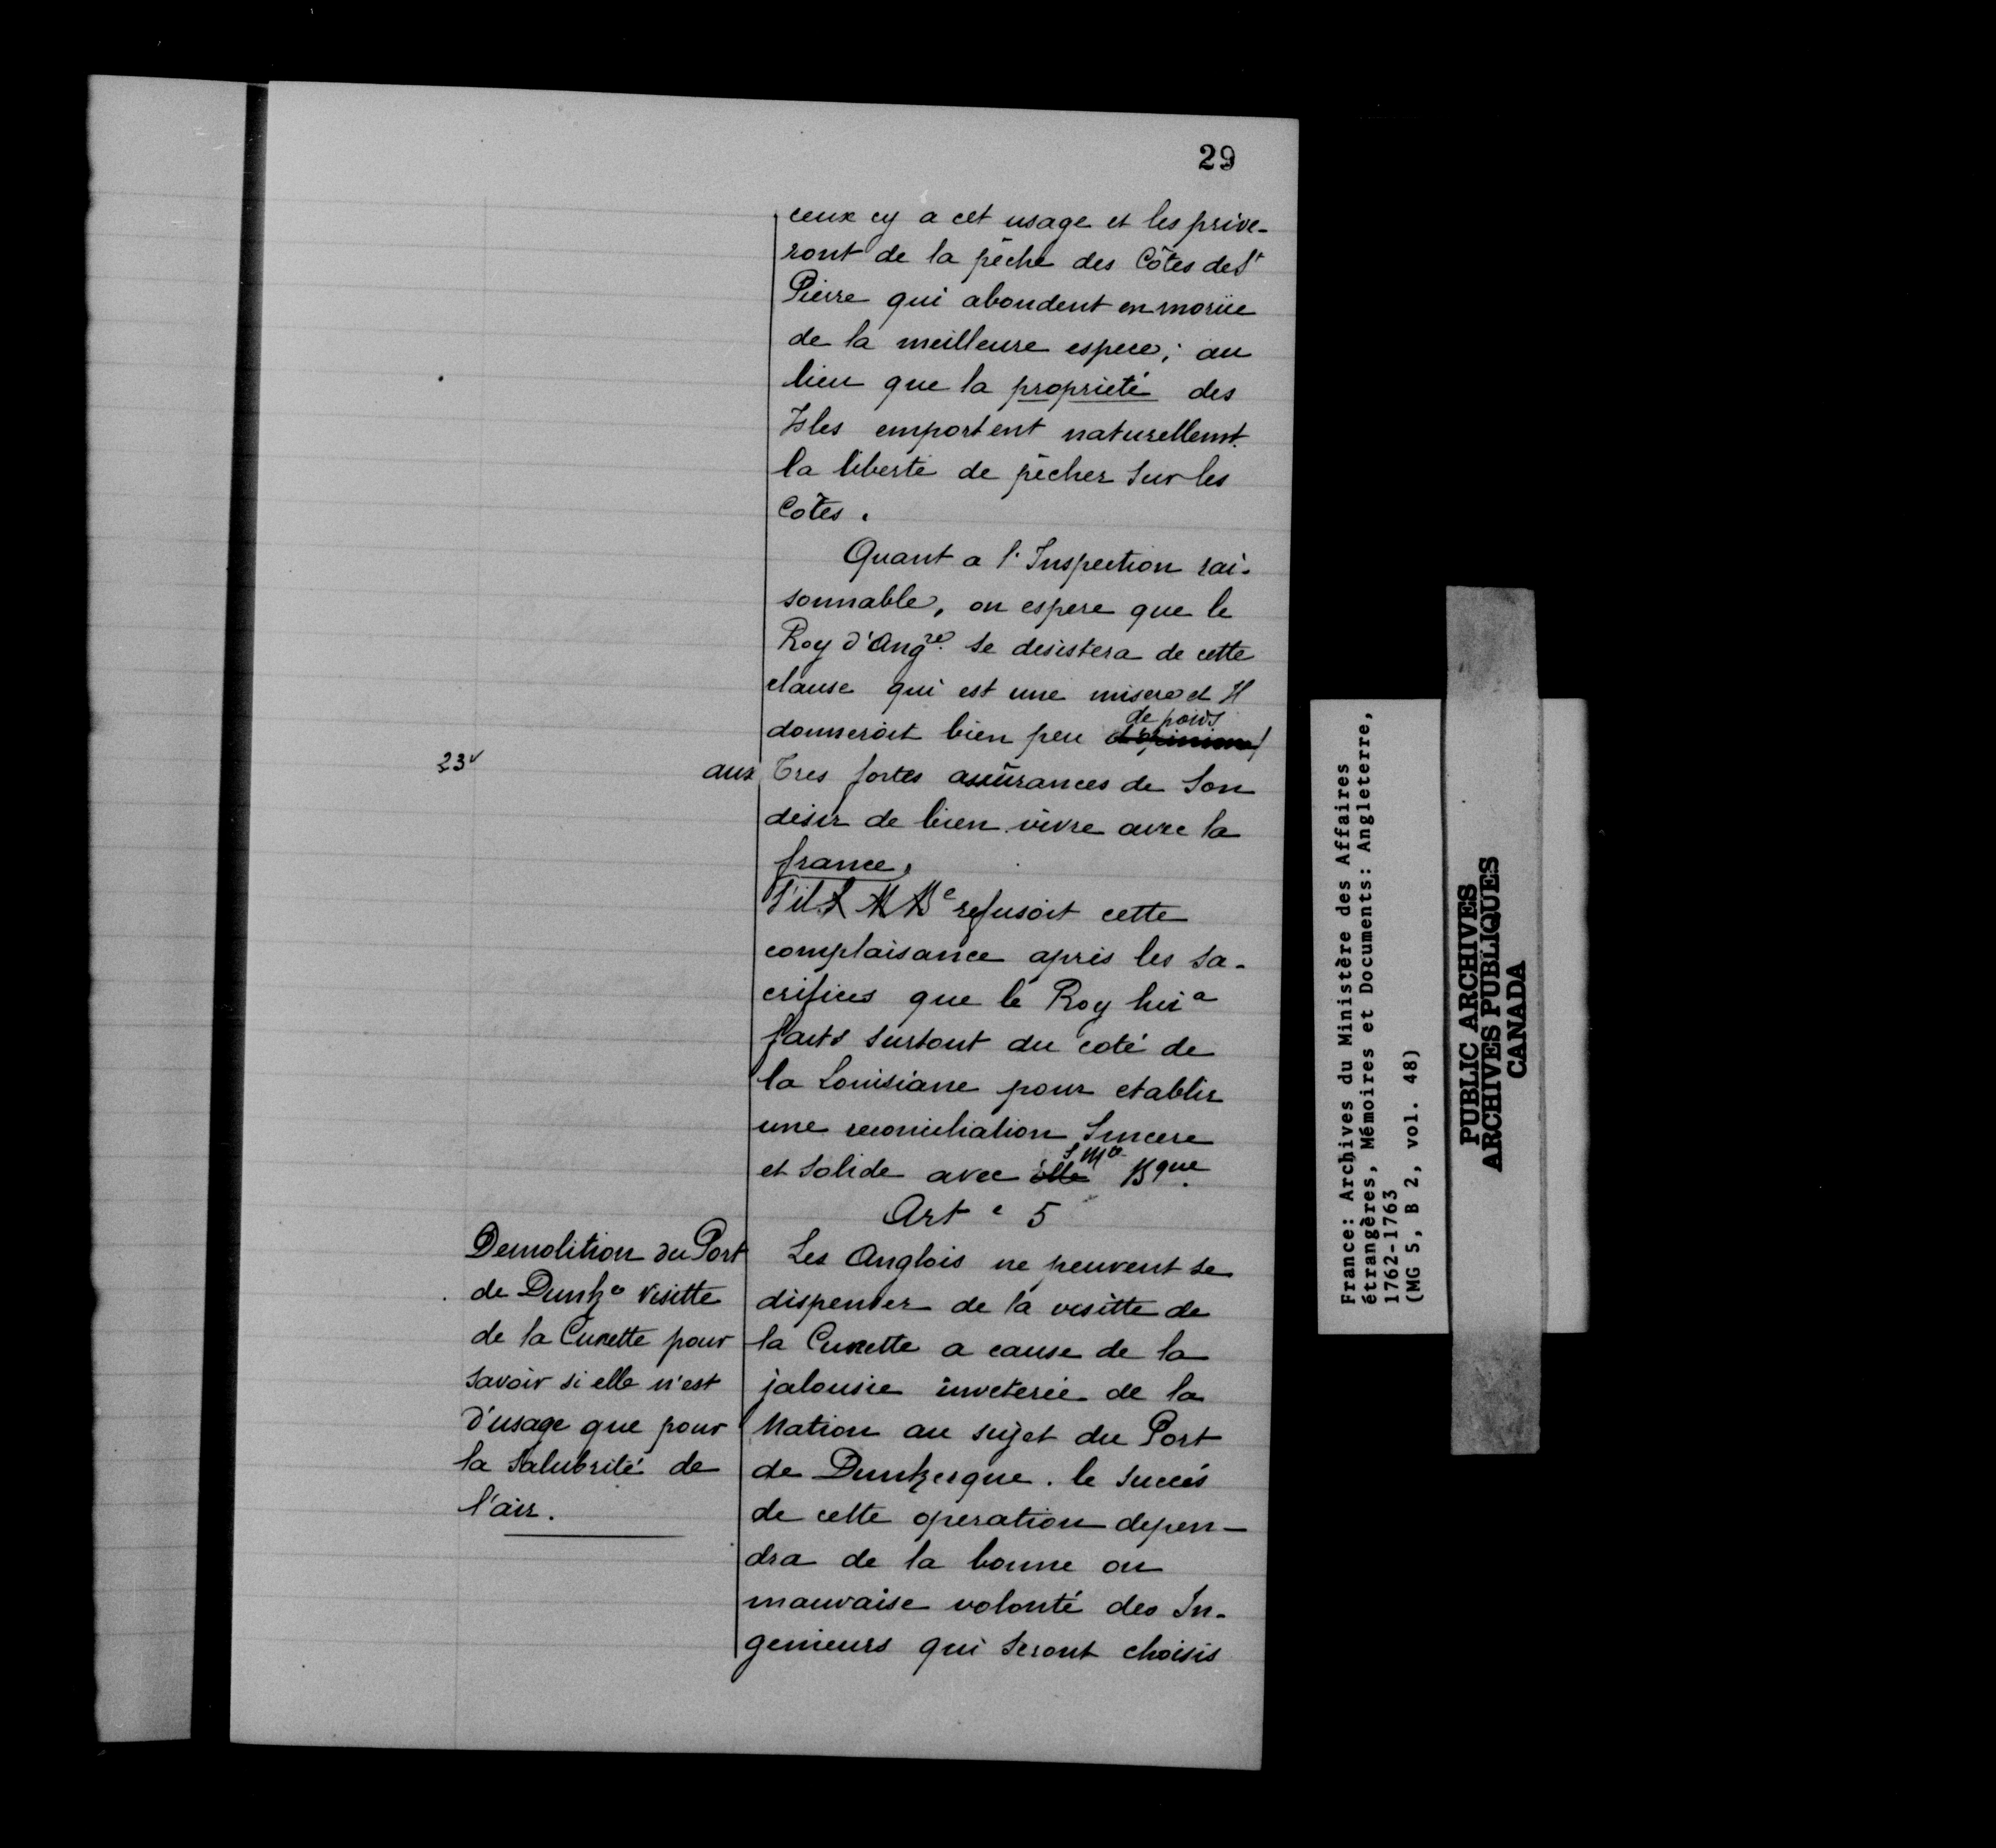 29
ceux cy a cet usage et les prive-
ront de la pêche des Côtes de St
Pierre qui abondent en moruë
de la meilleure espece; au
lieu que la proprieté des
Isles emportent naturellemt.
la liberté de pêcher sur les
Côtes.
Quant a l'Inspection rai-
sonnable, on espere que le
Roy d'Angre. se desistera de cette
clause qui est une misere et Il
de poids
donneroit bien peu d'opinion
23v
aux Tres fortes assûrances de son
desir de bien vivre avec la
france.
S'il S M Be refusoit cette
complaisance après les sa-
crifices que le Roy lui a
faits surtout du coté de
la Louisiane pour etablir
une reconciliation Sincere
et solide avec elle S Mé Bque.
Art e 5
Demolition du Port
de Dunke Visitte
de la Cunette pour
savoir si elle n'est
d'usage que pour
la Salubrité de
l'air.
Les Anglois ne peuvent se
dispenser de la visitte de
la Cunette a cause de la
jalousie inveterée de la
Nation au sujet du Port
de Dunkerque. le succés
de cette operation depen-
dra de la bonne ou
mauvaise volonté des In-
genieurs qui seront choisis
France: Archives du Ministère des Affaires
étrangères, Mémoires et Documents: Angleterre,
1762-1763
(MG 5, B 2, vol. 48)
PUBLIC ARCHIVES
ARCHIVES PUBLIQUES
CANADA